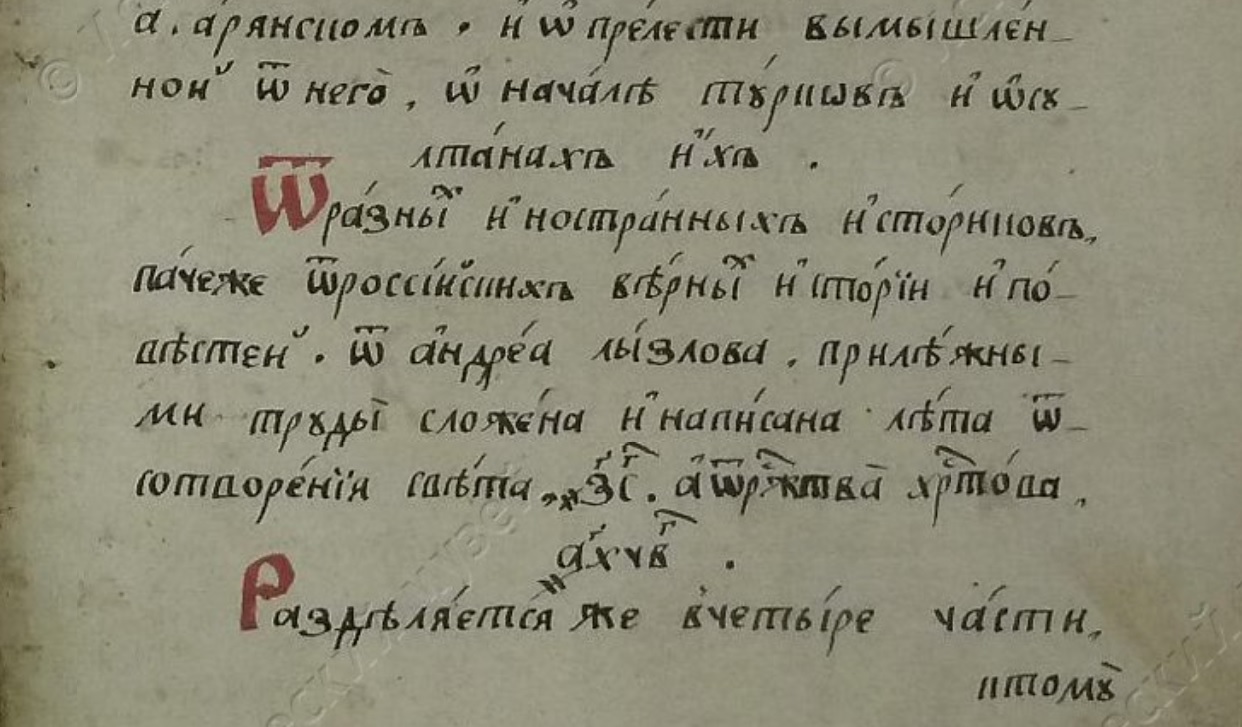 а҆ра́нскомъ . и҆ ѡ҆ пре́лести вымы́шлен-
ной ѿ негѡ̀ , ѡ҆ нача́лѣ ту́рковъ и҆ ѡ҆су-
лта́нахъ и҆́хъ .
Ѿра́зныⷯ и҆ностра́нныхъ и҆сто́риковъ,
па́чеже ѿроссі́йскихъ вѣ́рныⷯ и҆сто́рїи и҆ по́-
вѣстей . ѿ а҆ндре́а лы́злова . прилѣ́жны-
ми труды̀ сложе́на и҆ напи́сана лѣ́та ѿ-
сотворе́нїѧ свѣ́та ҂зс҃ . а҆ѿрⷤтва̀ хрⷭ҇то́ва ,
҂ахчв҃ .
Раздѣлѧ́етсѧ же вчеты́ре ча́сти,
ктомꙋ̀